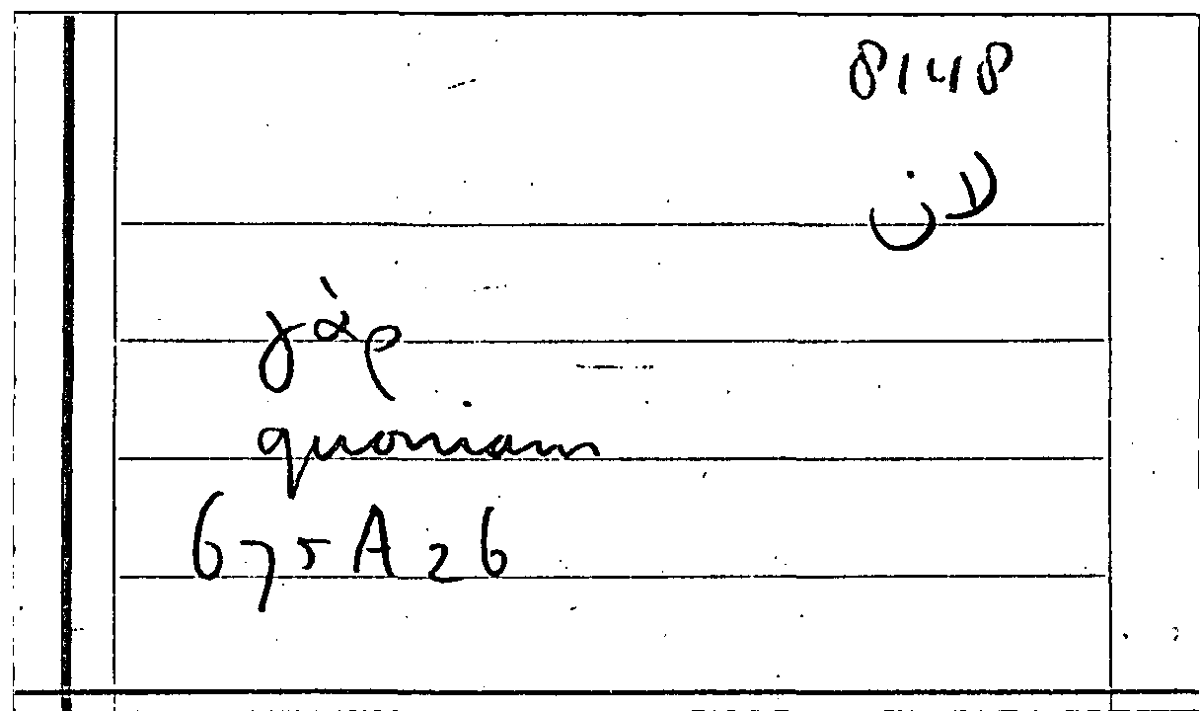 8148
لان
γὰρ
quoniam
675A26